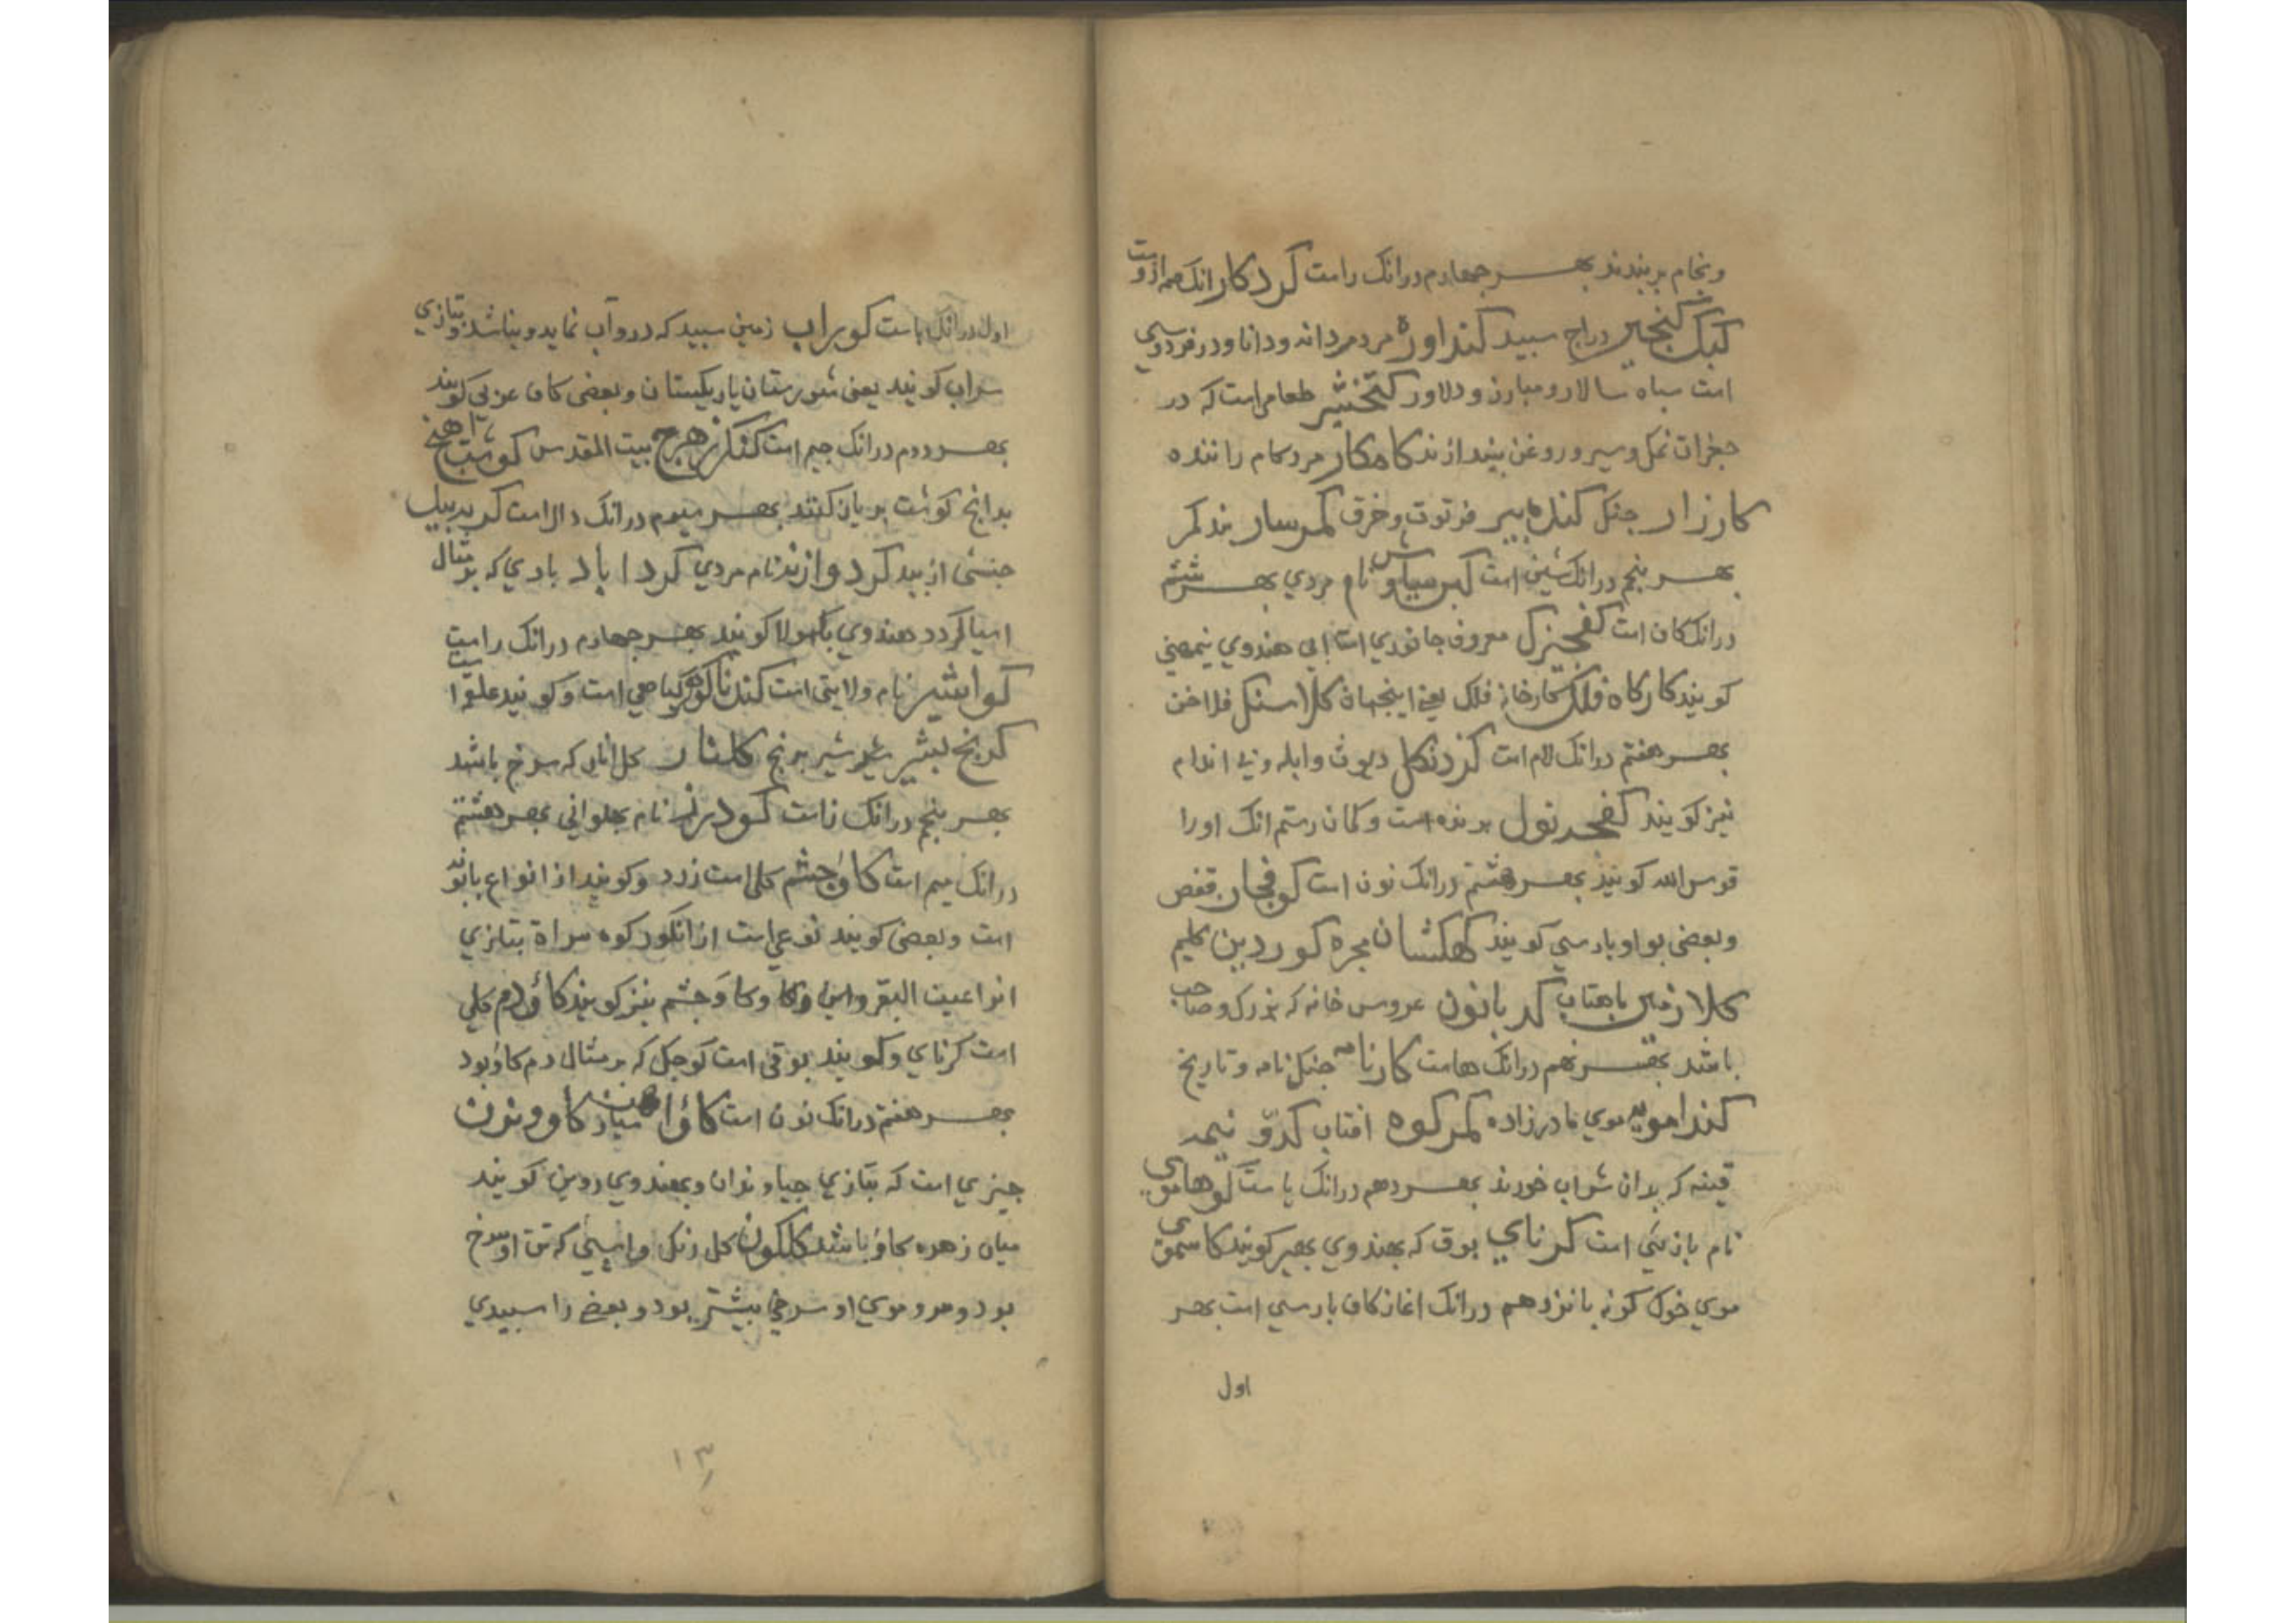 وبخام بربندند بهر جهارم درانک راست کردکار انک همه ازوست
کبک کنجیر دراج سبید کنداوره مردمردانه ودانا ودر فردوسی
است سباه سالار ومبارز ودلاور کتخشیر طعامی است که در
جغرات نمک وسیر وروغن بیندازند کامکار مرد کام راننده
کارزار جنک کنده بیر فرتوت وخرق کمرسار بند کمر
بهر بنجم درانک شین است کبر سیاوش نام مردی بهر ششم
درانک کاف است کفجیزک معروف جانوری است ابی هندوی
کویند کارکاه فلک کارخانه فلک یعنی اینجهان کلاسنک فلاخن
بهر هفتم درانک لام است کزدنکل دیوث وابله وبی اندام
نیز کویند کفجدنول برنده است وکمان رستم انک اورا
قوس الله کویند بهر هشتم درانک نون است کوفجان قفص
وبعضی بواو بارسی کویند کهکشان مجره کوردین کلیم
کلازمین باهتاب کدبانون عروس خانه که بزرک وصاحب
باشد بهر نهم درانک هاست کارنامه جنک نامه وتاریخ
کندامویه موی مادرزاده کمرکوه افتاب کدو نیمه
قینه که بدان شراب خورند بهر دهم درانک یاست کوهاموی
نام بازیئی است کرنای بوق که بهندوی بهیر کویند کاسموی
موی خوک کونه بانزدهم درانک اغاز کاف بارسی است بهر
اول
اول درانک باست کوراب زمین سبید که درو آب نماید ونباشد وبتازی
سراب کویند یعنی شورستان یا ریکستان وبعضی کاف عربی کویند
بهر دوم درانک جیم است کنکزهرج بیت المقدس کوشت اهنج
بدانچ کوشت بریان کنند بهر سیوم درانک دال است کربدبید
جنسی از بید کردوازند نام مردی کرداباد بادی که بر مثال
اسیا کردد هندوی بکهولا کویند بهر جهارم درانک راست
کواشیر نام ولایتی است کندناکوهر کیاهی است وکویند علقوا است
کرنج بشیر شیر برنج کلنار کل انار که سرخ باشد
بهر بنجم درانک زاست کودرز نام بهلوانی بهر هشتم
درانک میم است کاوجشم کلی است زرد وکویند از انواع بابونه
است وبعضی کویند نوعی است از انکور کوه سراة بتازی
انواعیت البقر واین وکا وکاوجشم نیز کویند کاودم کلی
است کرنای وکویند بوقی است کوجک که بر مثال دم کاو بود
بهر هفتم درانک نون است کاواهن میار کاوونزن
جیزی است که بتازی جیاونزان وبهندوی روین کویند
میان زهره کاو باشد کلکون کل رنک واسپی که تن او سرخ
بود ومرو موی او سرخی بیشتر بود وبعضی را سبیدی
۱۳